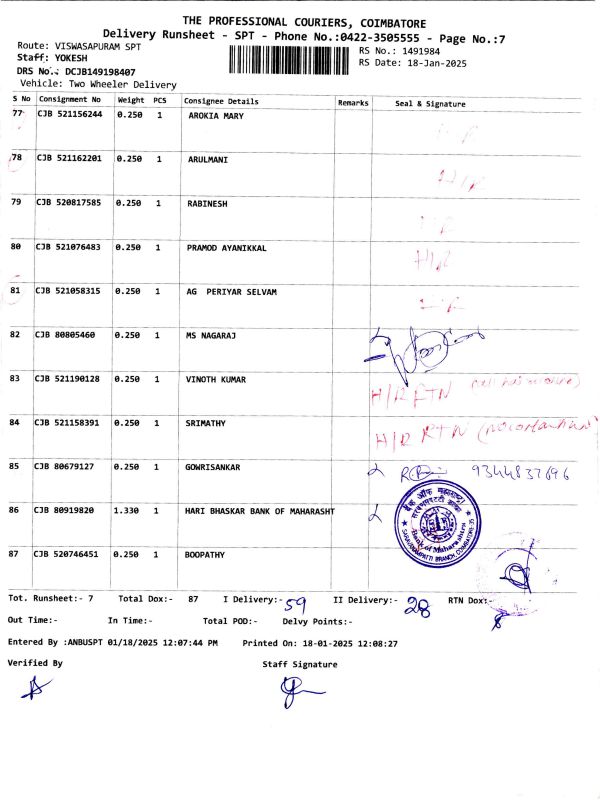 THE PROFESSIONAL COURIERS, COIMBATORE
Delivery Runsheet - SPT - Phone No.:0422-3505555 - Page No.:7
Route: VISWASAPURAM SPT
RS No.: 1491984
Staff: YOKESH
RS Date: 18-Jan-2025
DRS No.: DCJB149198407
Vehicle: Two Wheeler Delivery
S No Consignment No Weight PCS Consignee Details Remarks Seal & Signature
77 CJB 521156244 0.250 1 AROKIA MARY
78 CJB 521162201 0.250 1 ARULMANI H/R
79 CJB 520817585 0.250 1 RABINESH
80 CJB 521076483 0.250 1 PRAMOD AYANIKKAL H/R
81 CJB 521058315 0.250 1 AG PERIYAR SELVAM
82 CJB 80805460 0.250 1 MS NAGARAJ
83 CJB 521190128 0.250 1 VINOTH KUMAR H/R RTN
84 CJB 521158391 0.250 1 SRIMATHY H/R RTN
85 CJB 80679127 0.250 1 GOWRISANKAR 9344837696
86 CJB 80919820 1.330 1 HARI BHASKAR BANK OF MAHARASHT
Bank of Maharashtra
SARAVANAMPATTI BRANCH, COIMBATORE-35
87 CJB 520746451 0.250 1 BOOPATHY
Tot. Runsheet:- 7 Total Dox:- 87 I Delivery:- 59 II Delivery:- 28 RTN Dox:- 8
Out Time:- In Time:- Total POD:- Delvy Points:-
Entered By :ANBUSPT 01/18/2025 12:07:44 PM Printed On: 18-01-2025 12:08:27
Verified By Staff Signature